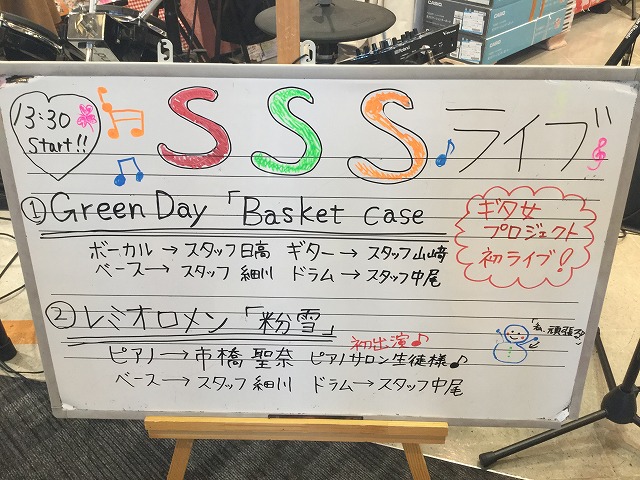 13:30
start!!
SSSライブ
① Green Day 「Basket case
ボーカル→スタッフ日高 ギター→スタッフ山﨑
ベース→スタッフ 細川 ドラム→スタッフ中尾
ギタ女
プロジェクト
初ライブ!
② レミオロメン「粉雪」
初出演♪
ピアノ→市橋 聖奈 ピアノサロン生徒様♪
ベース→スタッフ細川 ドラム→スタッフ中尾
CASIO